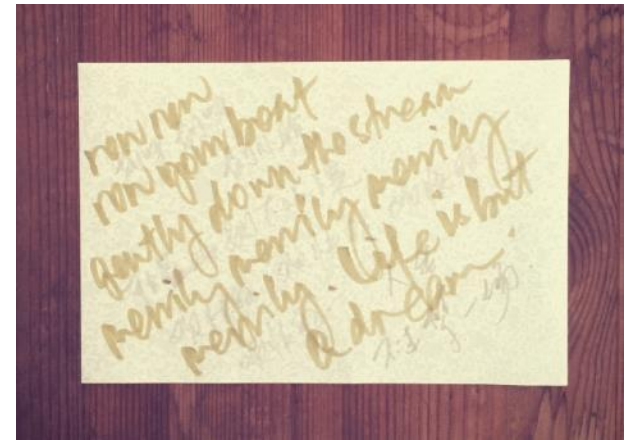 row row
row your boat
gently down the stream
merrily merrily merrily
merrily. life is but
a dream.